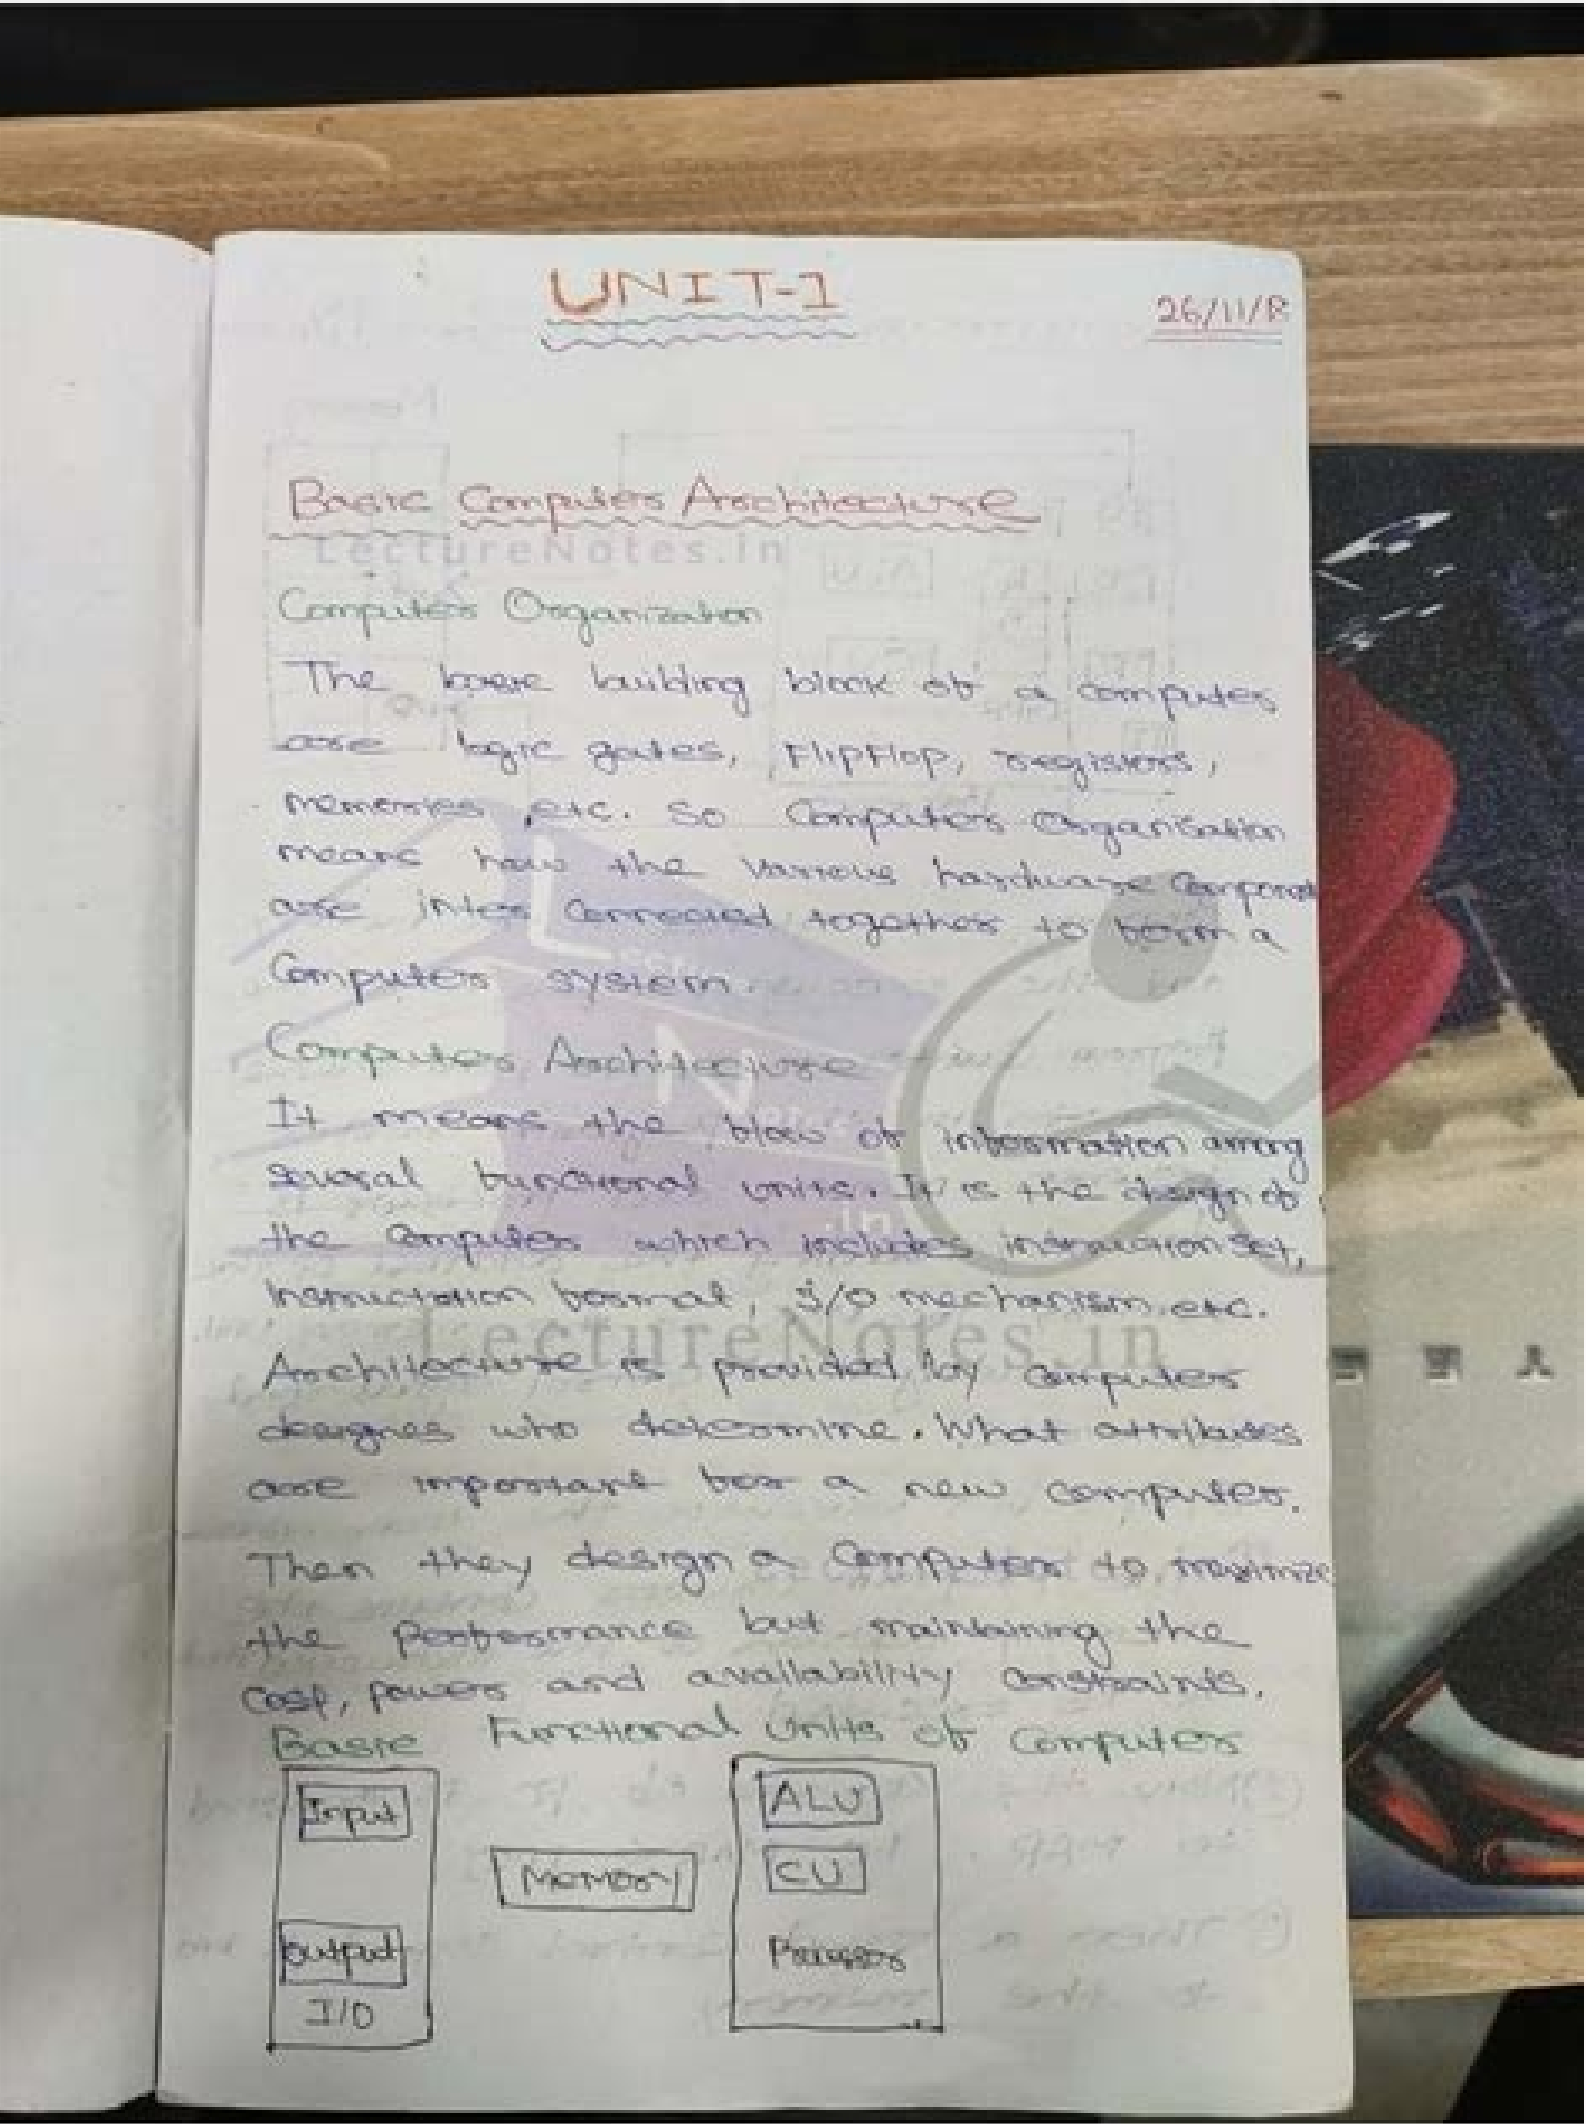 UNIT-1
26/11/18
Basic Computer Architecture
LectureNotes.in
Computer Organization
The basic building block of a computer
are logic gates, FlipFlop, registers,
memories etc. So Computer Organisation
means how the various hardware Component
are inter Connected together to form a
Computer system.
Computer Architecture
It means the flow of information among
several functional units. It is the design of
the Computer which includes instruction set,
Instruction format, I/O mechanism etc.
LectureNotes.in
Architecture is provided by Computer
designes who determine. What attributes
are important for a new computer.
Then they design a Computer to maximize
the performance but maintaining the
Cost, power and availability Constraints.
Basic Functional Units of Computer
Input
ALU
Memory
CU
Output
I/O